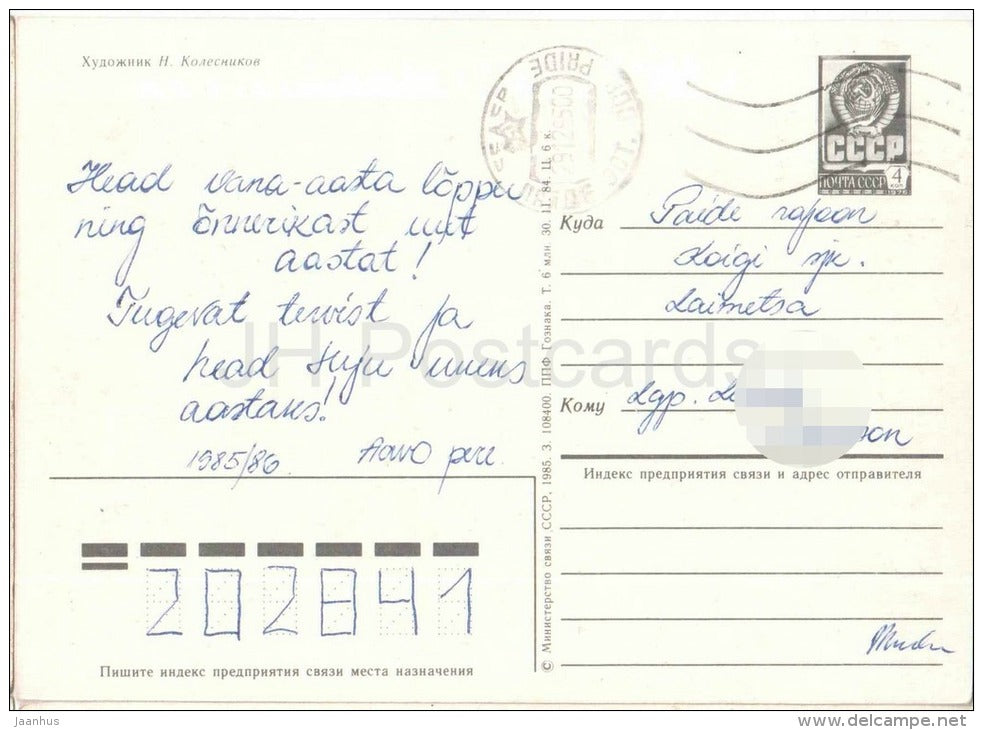 Художник Н. Колесников
PRIDE
СССР
ПОЧТА СССР 4 коп
1976
Head vana-aasta lõppu
ning õnnerikast uut
aastat!
Tugevat tervist ja
head tuju uueks
aastaks!
1985/86 Aavo pere.
Куда Paide rajoon
Koigi sjk.
Laimetsa
Кому Lgp.
Индекс предприятия связи и адрес отправителя
© Министерство связи СССР, 1985. З. 108400. ППФ Гознака. Т. 6 млн. 30. II. 84. Ц. 6 к.
202841
Пишите индекс предприятия связи места назначения
JH Postcards
Jaanhus
www.delcampe.net